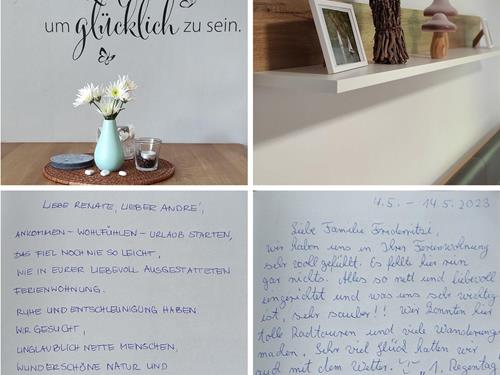 um glücklich zu sein.
LIEBE RENATE, LIEBER ANDRE´,
ANKOMMEN – WOHLFÜHLEN – URLAUB STARTEN,
DAS FIEL NOCH NIE SO LEICHT,
WIE IN EURER LIEBEVOLL AUSGESTATTETEN
FERIENWOHNUNG.
RUHE UND ENTSCHLEUNIGUNG HABEN
WIR GESUCHT,
UNGLAUBLICH NETTE MENSCHEN,
WUNDERSCHÖNE NATUR UND
4.5. – 14.5. 2023
Liebe Familie
wir haben uns in Ihrer Ferienwohnung
sehr wohl gefühlt. Es fehlte hier rein
gar nichts. Alles so nett und liebevoll
eingerichtet und was uns sehr wichtig
ist, sehr sauber!! Wir konnten hier
tolle Radtouren und viele Wanderungen
machen. Sehr viel Glück hatten wir
auch mit dem Wetter. 1. Regentag